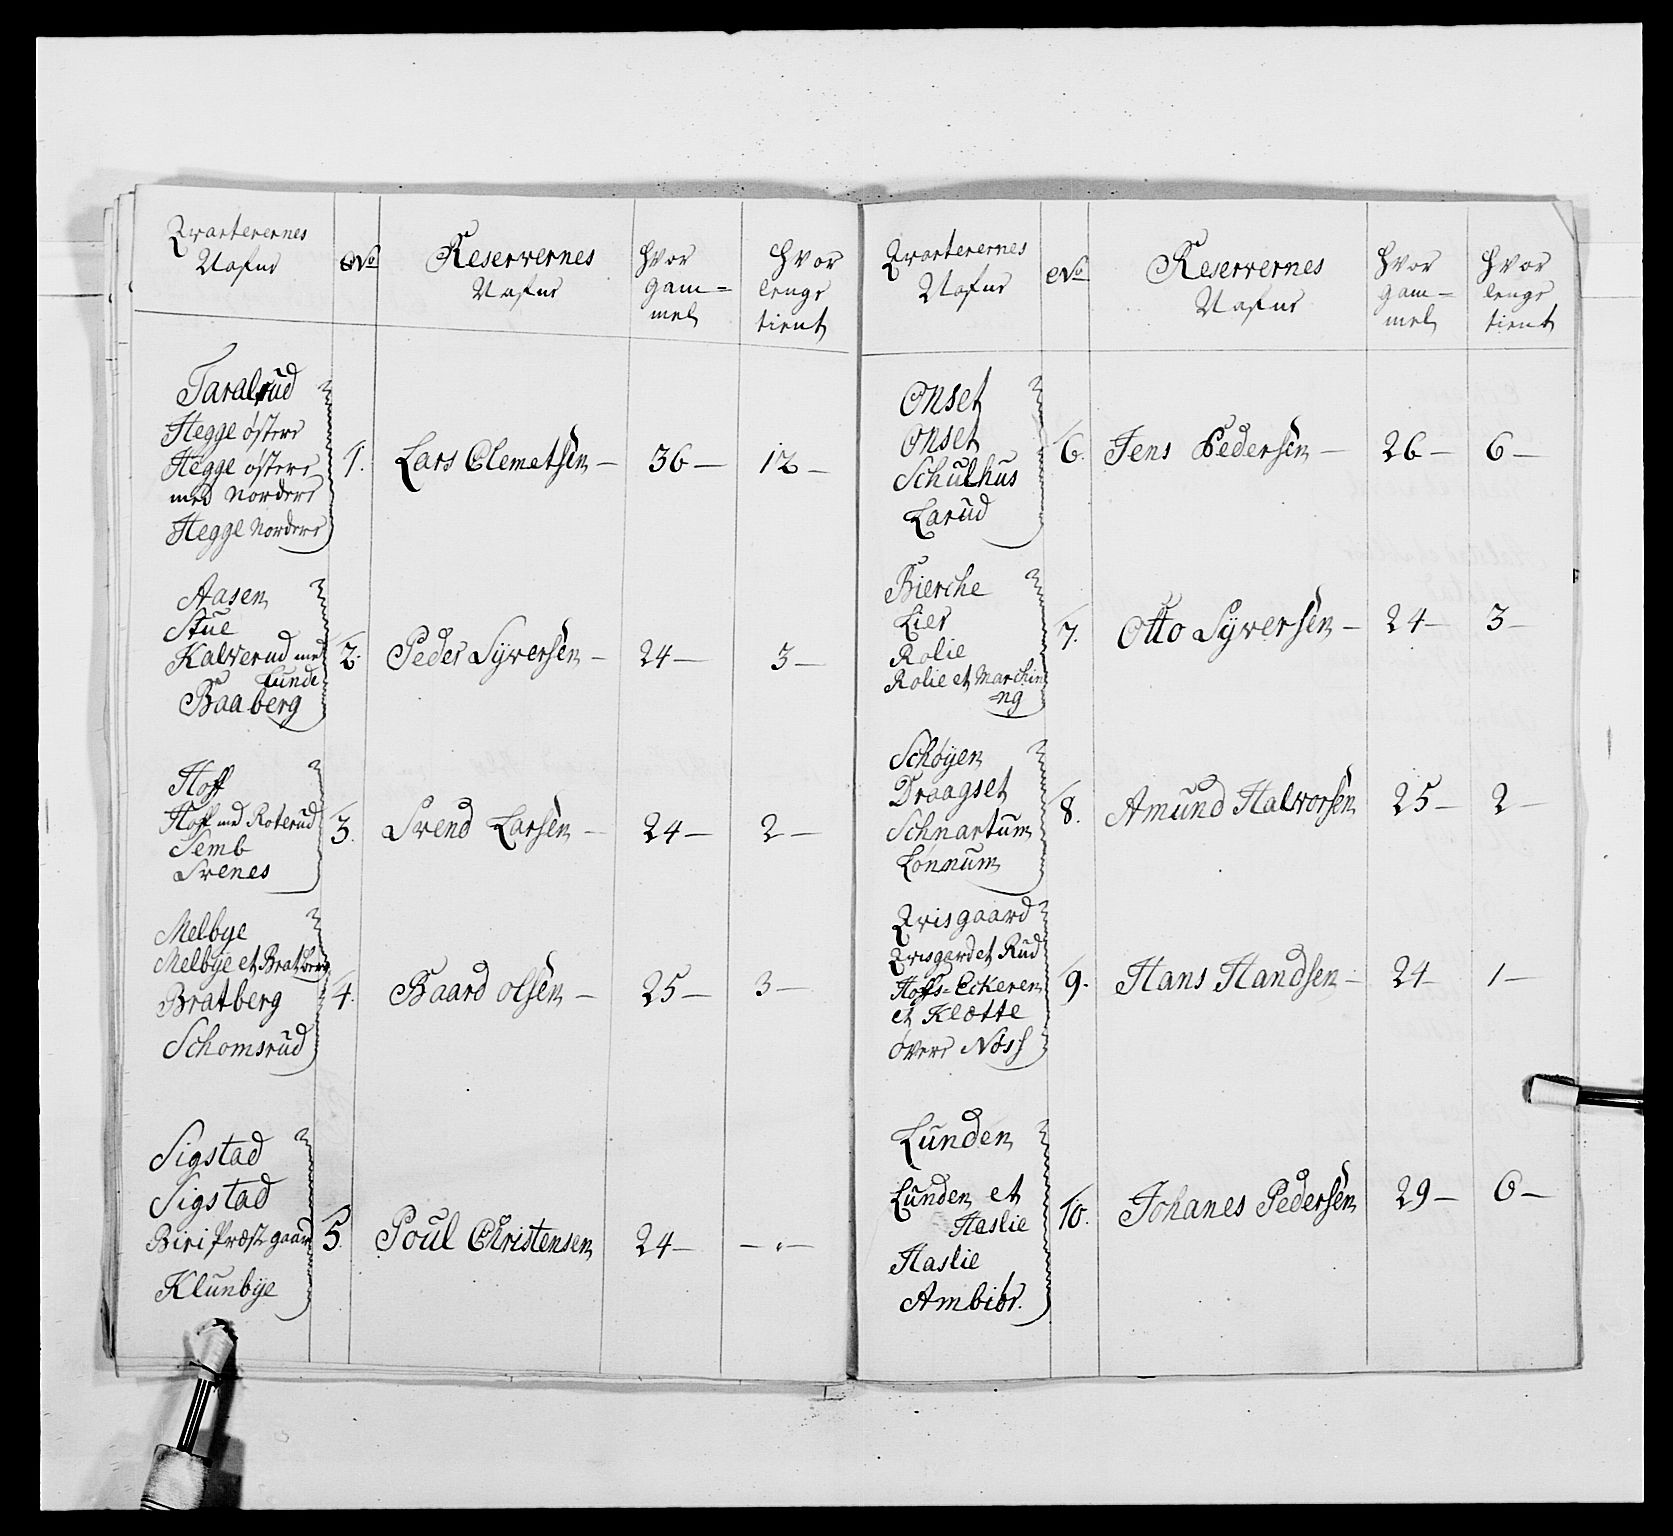 Qvarterernes
Nafne
No
Reservernes
Nafne
Hvor
gam=
mel
Hvor
lenge
tient
Taralrud
Hegge østere
Hegge østere
med Nordere
Hegge Nordere
1. Lars Clemetsen — 36 — 12 —
Aasen
Stue
Kalverud med
Lunde
Baaberg
2. Peder Syversen — 24 — 3 —
Hoff
Hoff med Roterud
Semb
Svenes
3. Svend Larsen — 24 — 2 —
Melbye
Melbye et Bratberg
Bratberg
Schomsrud
4. Baard Olsen — 25 — 3 —
Sigstad
Sigstad
Biri Præste gaard
Klunbye
5. Poul Christensen 24 — — " —
Qvarterernes
Nafne
No
Reservernes
Nafne
Hvor
gam=
mel
Hvor
lenge
tient
Onset
Onset
Schulhus
Larud
6. Jens Pedersen — 26 — 6 —
Bierche
Lier
Rolie
Rolie et Marchin
=ng
7. Otto Syversen — 24 — 3 —
Schøyen
Draagset
Schnartum
Lønnum
8. Amund Halvorsen 25 — 2 —
Qvisgaard
Qvisgard et Rud
Hoffs=Eckeren
et Klætte
øvere Nøss
9. Hans Handsen — 24 — 1 —
Lunden
Lunden et
Haslie
Haslie
Ambiør.
10. Johanes Pedersen 29 — 6 —